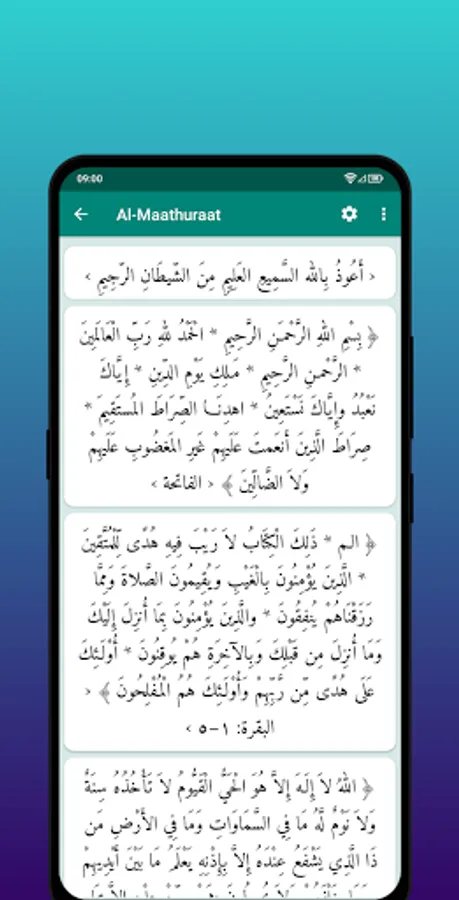 09:00
Al-Maathuraat
‹ أَعُوذُ بِالله السَّمِيعِ العَلِيمِ مِنَ الشَّيطَانِ الرَّجِيمِ ›
﴿ بِسْمِ اللهِ الرَّحْمَنِ الرَّحِيمِ * الْحَمْدُ للهِ رَبِّ الْعَالَمِينَ
* الرَّحْمنِ الرَّحِيمِ * مَـلِكِ يَوْمِ الدِّينِ * إِيَّاكَ
نَعْبُدُ وإِيَّاكَ نَسْتَعِينُ * اهدِنَــا الصِّرَاطَ المُستَقِيمَ *
صِرَاطَ الَّذِينَ أَنعَمتَ عَلَيهِمْ غَيرِ المَغضُوبِ عَلَيهِمْ
وَلاَ الضَّالِّينَ ﴾ ‹ الفاتحة ›
﴿ الـم * ذَلِكَ الْكِتَابُ لاَ رَيْبَ فِيهِ هُدًى لِّلْمُتَّقِينَ
* الَّذِينَ يُؤْمِنُونَ بِالْغَيْبِ وَيُقِيمُونَ الصَّلاةَ وَمِمَّا
رَزَقْنَاهُمْ يُنفِقُونَ * والَّذِينَ يُؤْمِنُونَ بِمَا أُنزِلَ إِلَيْكَ
وَمَا أُنزِلَ مِن قَبْلِكَ وَبِالآخِرَةِ هُمْ يُوقِنُونَ * أُوْلَـئِكَ
عَلَى هُدًى مِّن رَّبِّهِمْ وَأُوْلَـئِكَ هُمُ الْمُفْلِحُونَ ﴾ ‹
البقرة: ١-٥ ›
﴿ اللهُ لاَ إِلَـهَ إِلاَّ هُوَ الْحَيُّ الْقَيُّومُ لاَ تَأْخُذُهُ سِنَةٌ
وَلاَ نَوْمٌ لَّهُ مَا فِي السَّمَاوَاتِ وَمَا فِي الأَرْضِ مَن
ذَا الَّذِي يَشْفَعُ عِنْدَهُ إِلاَّ بِإِذْنِهِ يَعْلَمُ مَا بَيْنَ أَيْدِيهِمْ